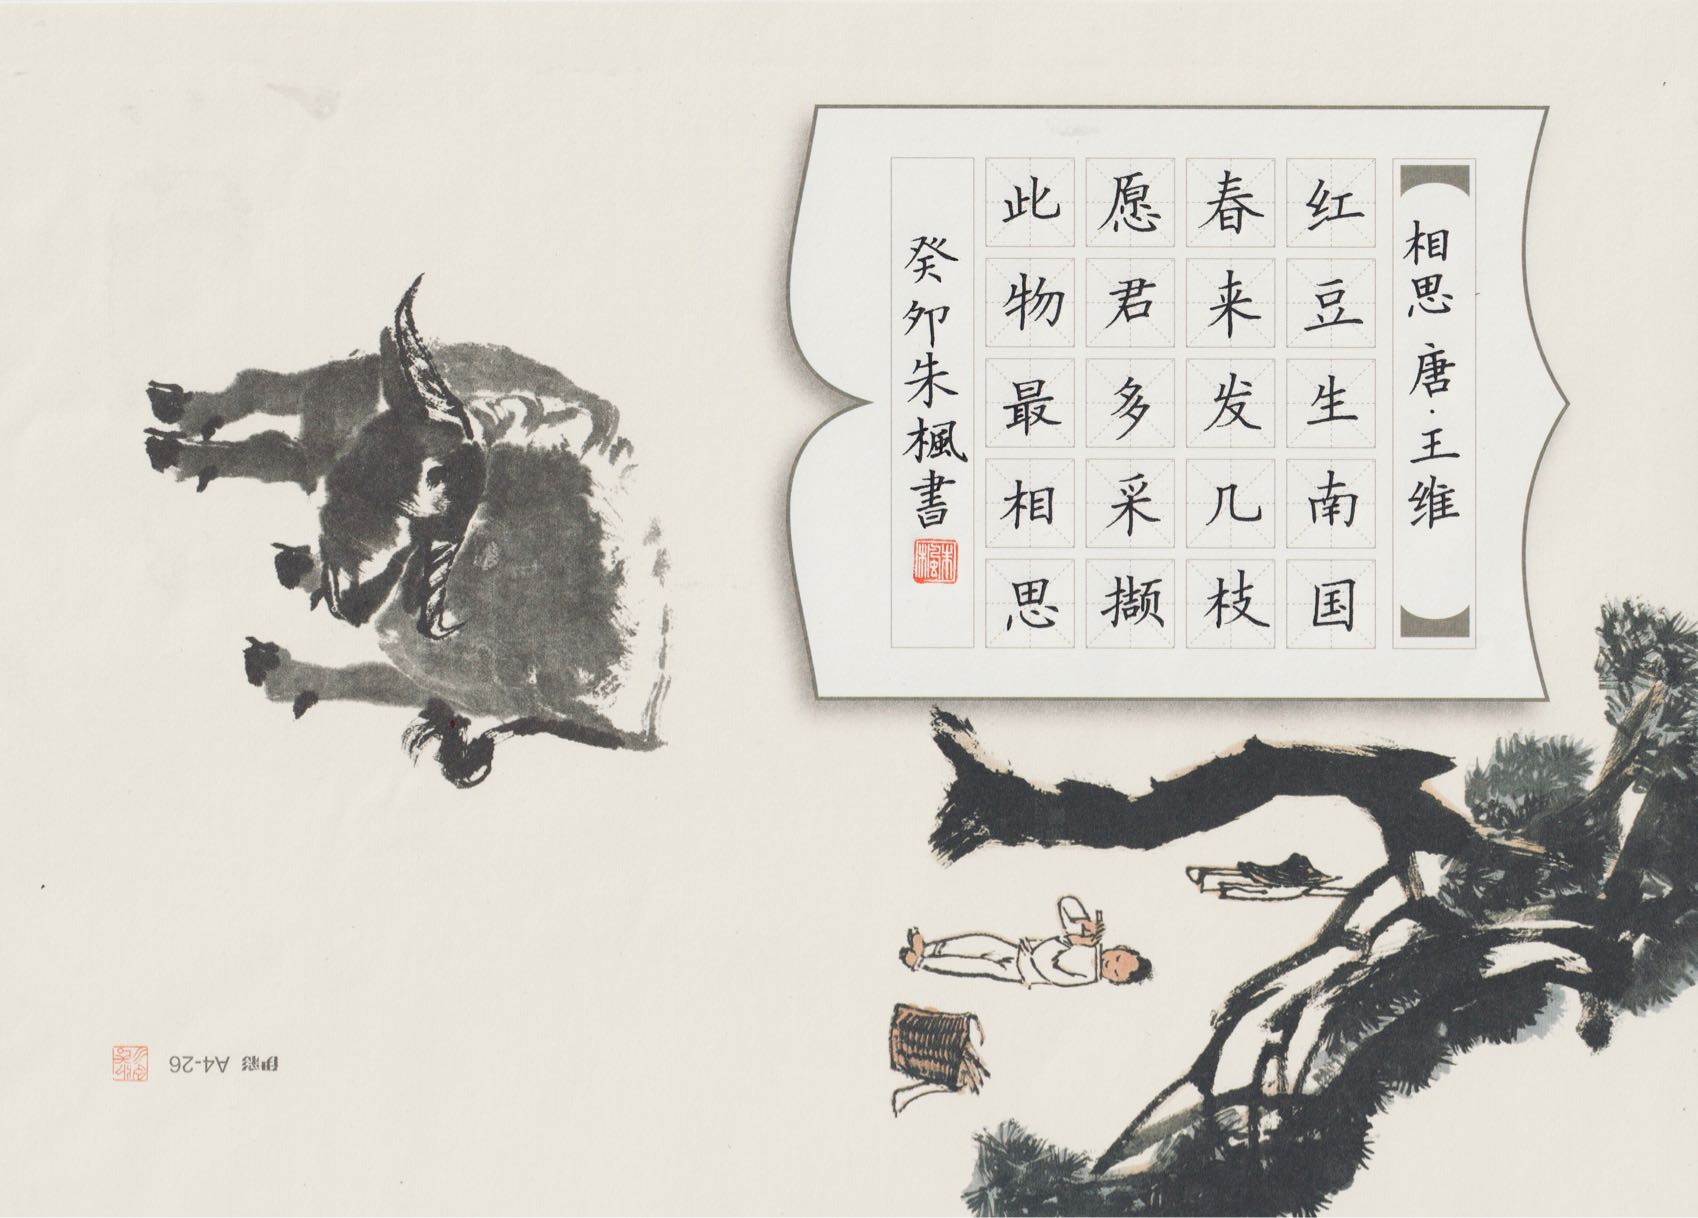 相思 唐·王维
红豆生南国
春来发几枝
愿君多采撷
此物最相思
癸卯朱楓書
朱楓
伊彩 A4-26